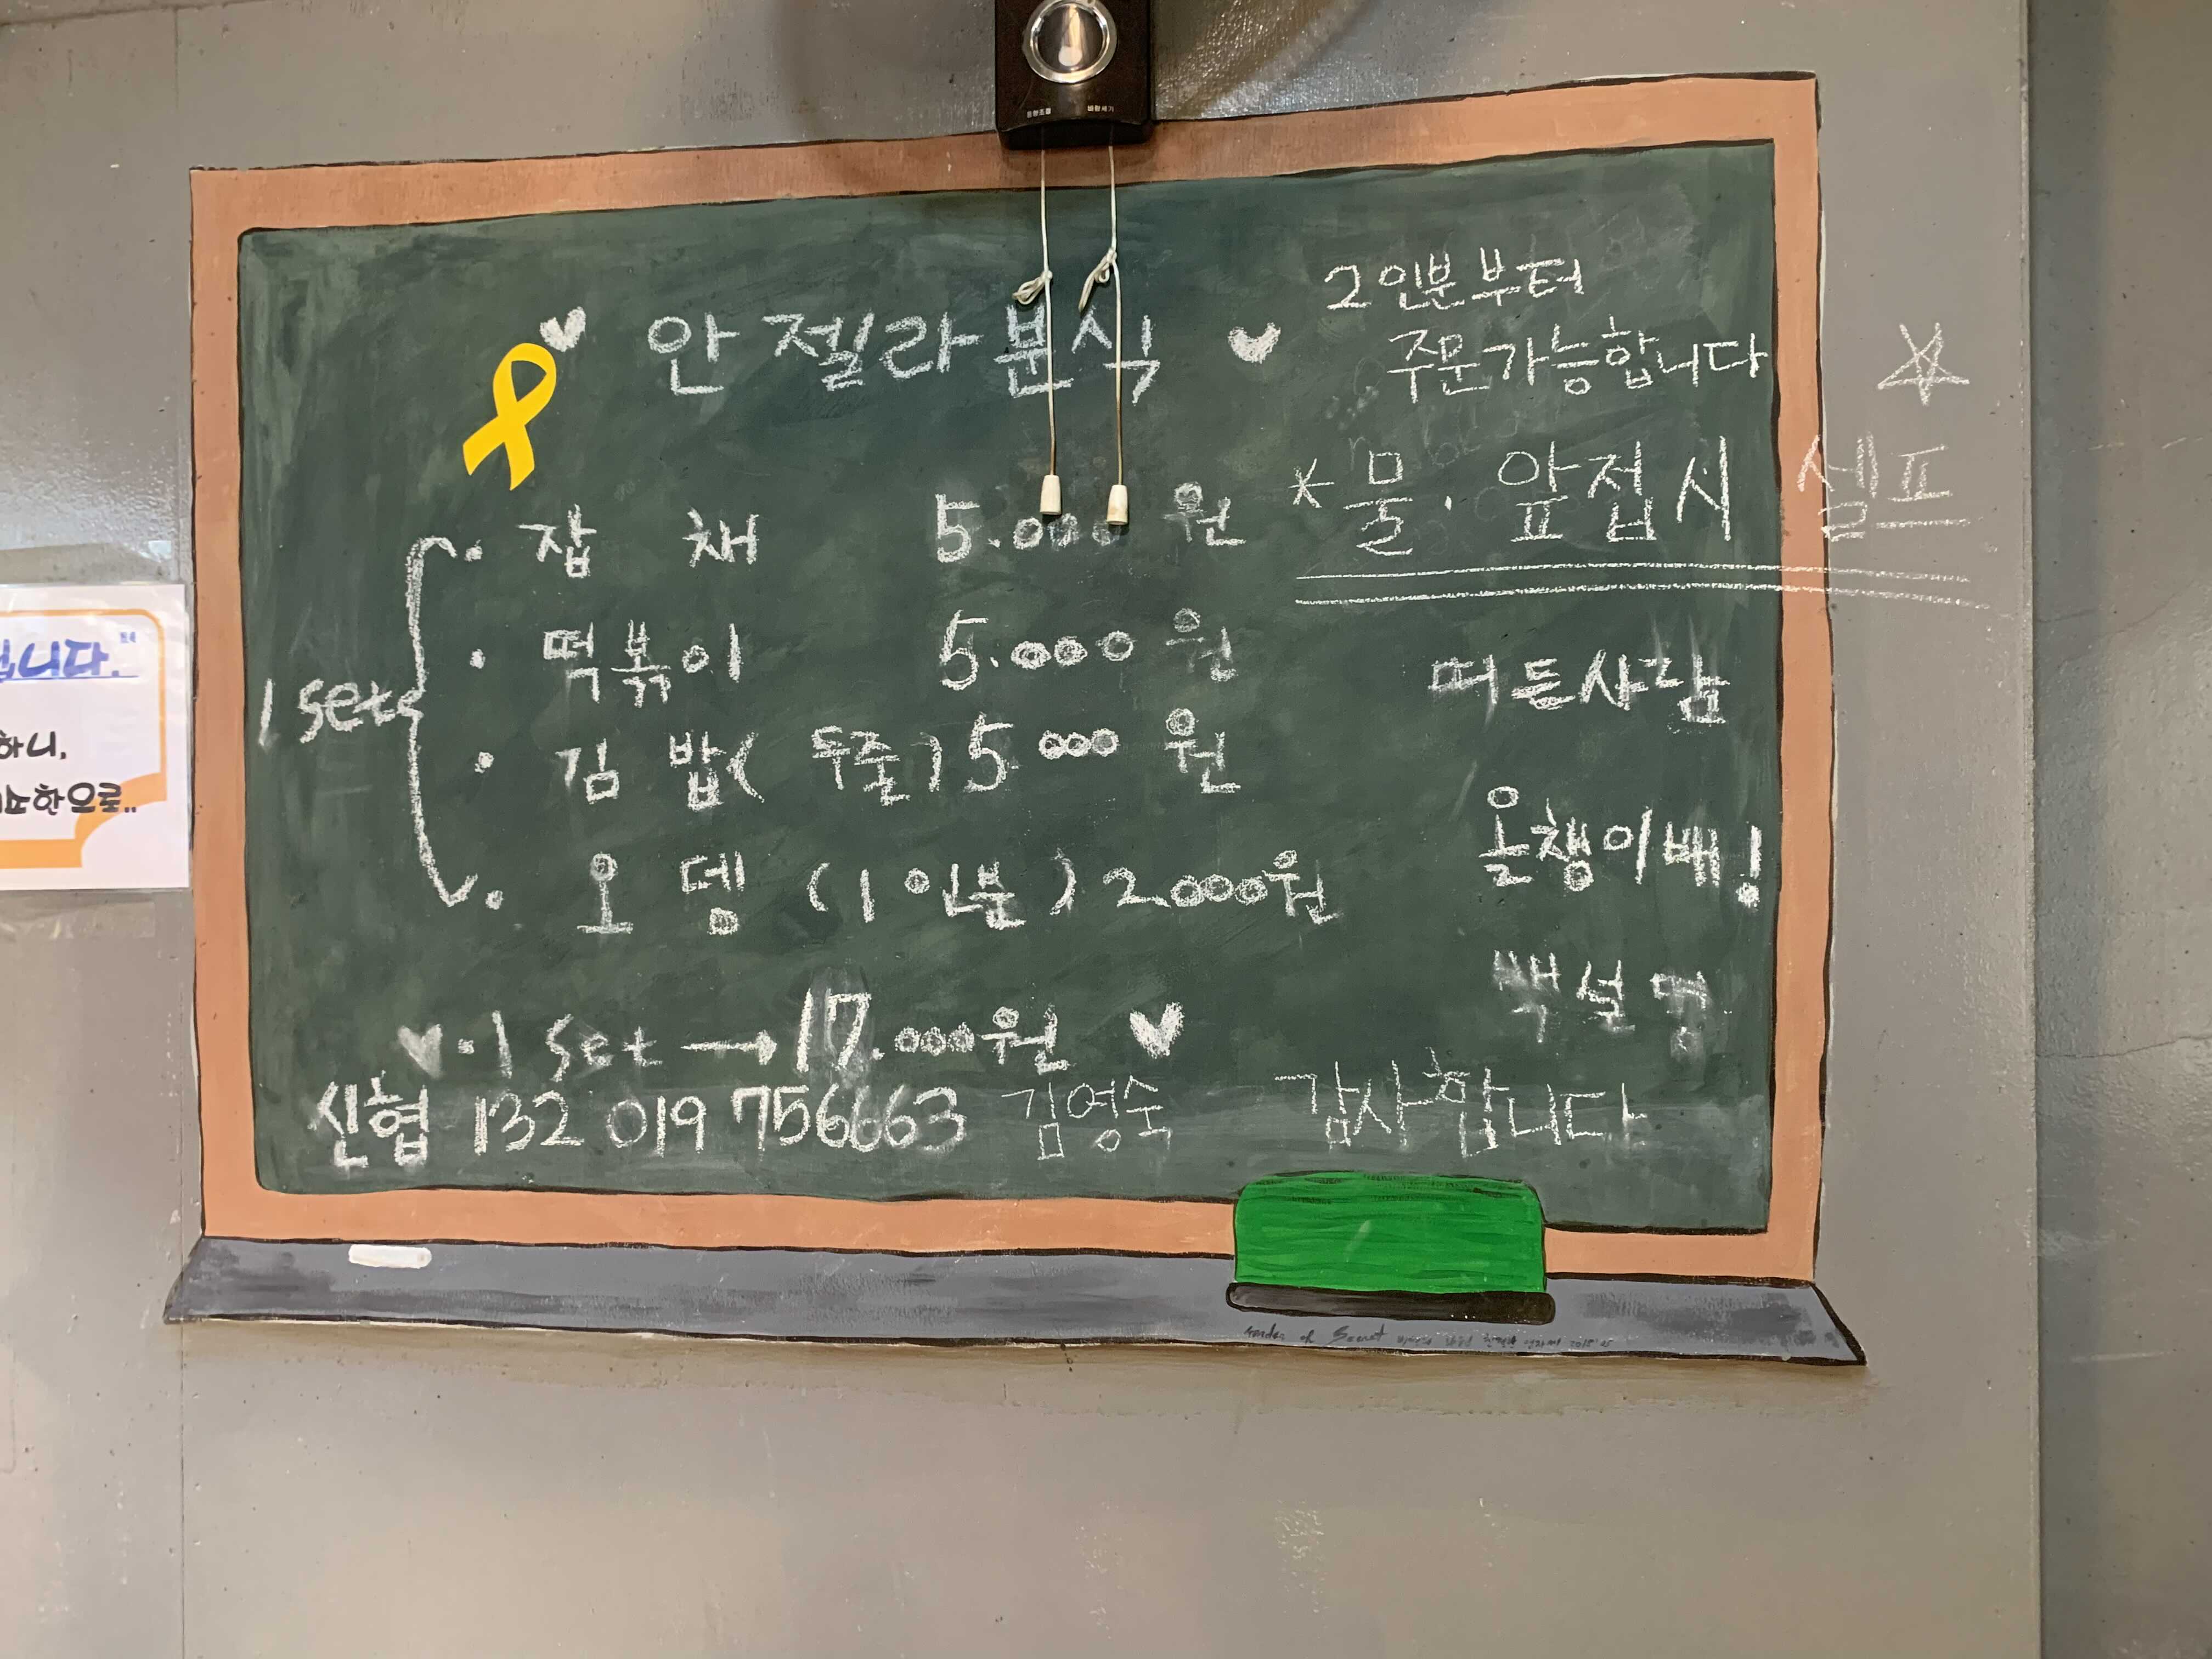 음향조절 바람세기
안젤라분식
2인분부터
주문가능합니다
*물. 앞접시 셀프
1 set
· 잡 채 5.000 원
· 떡볶이 5.000 원
· 김 밥 (두줄) 5 000 원
· 오 뎅 (1 인분) 2.000원
떠든사람
올챙이배!
백설명
· 1 set → 17.000원
신협 132 019 756663 김영숙 감사합니다
니다."
하니,
Garden of Secret